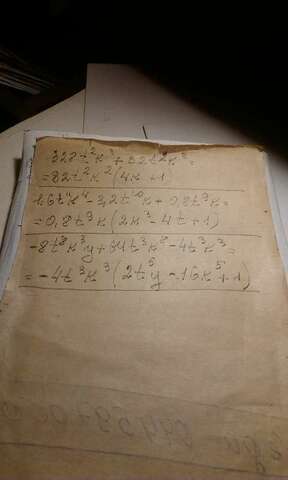 328t²k³ + 82t²k² =
= 82t²k²(4k + 1)
1,6t⁹k⁴ - 3,2t¹⁰k + 0,8t⁹k =
= 0,8t⁹k(2k³ - 4t + 1)
-8t⁸k³y + 64t³k⁸ - 4t³k³ =
= -4t³k³(2t⁵y - 16k⁵ + 1)